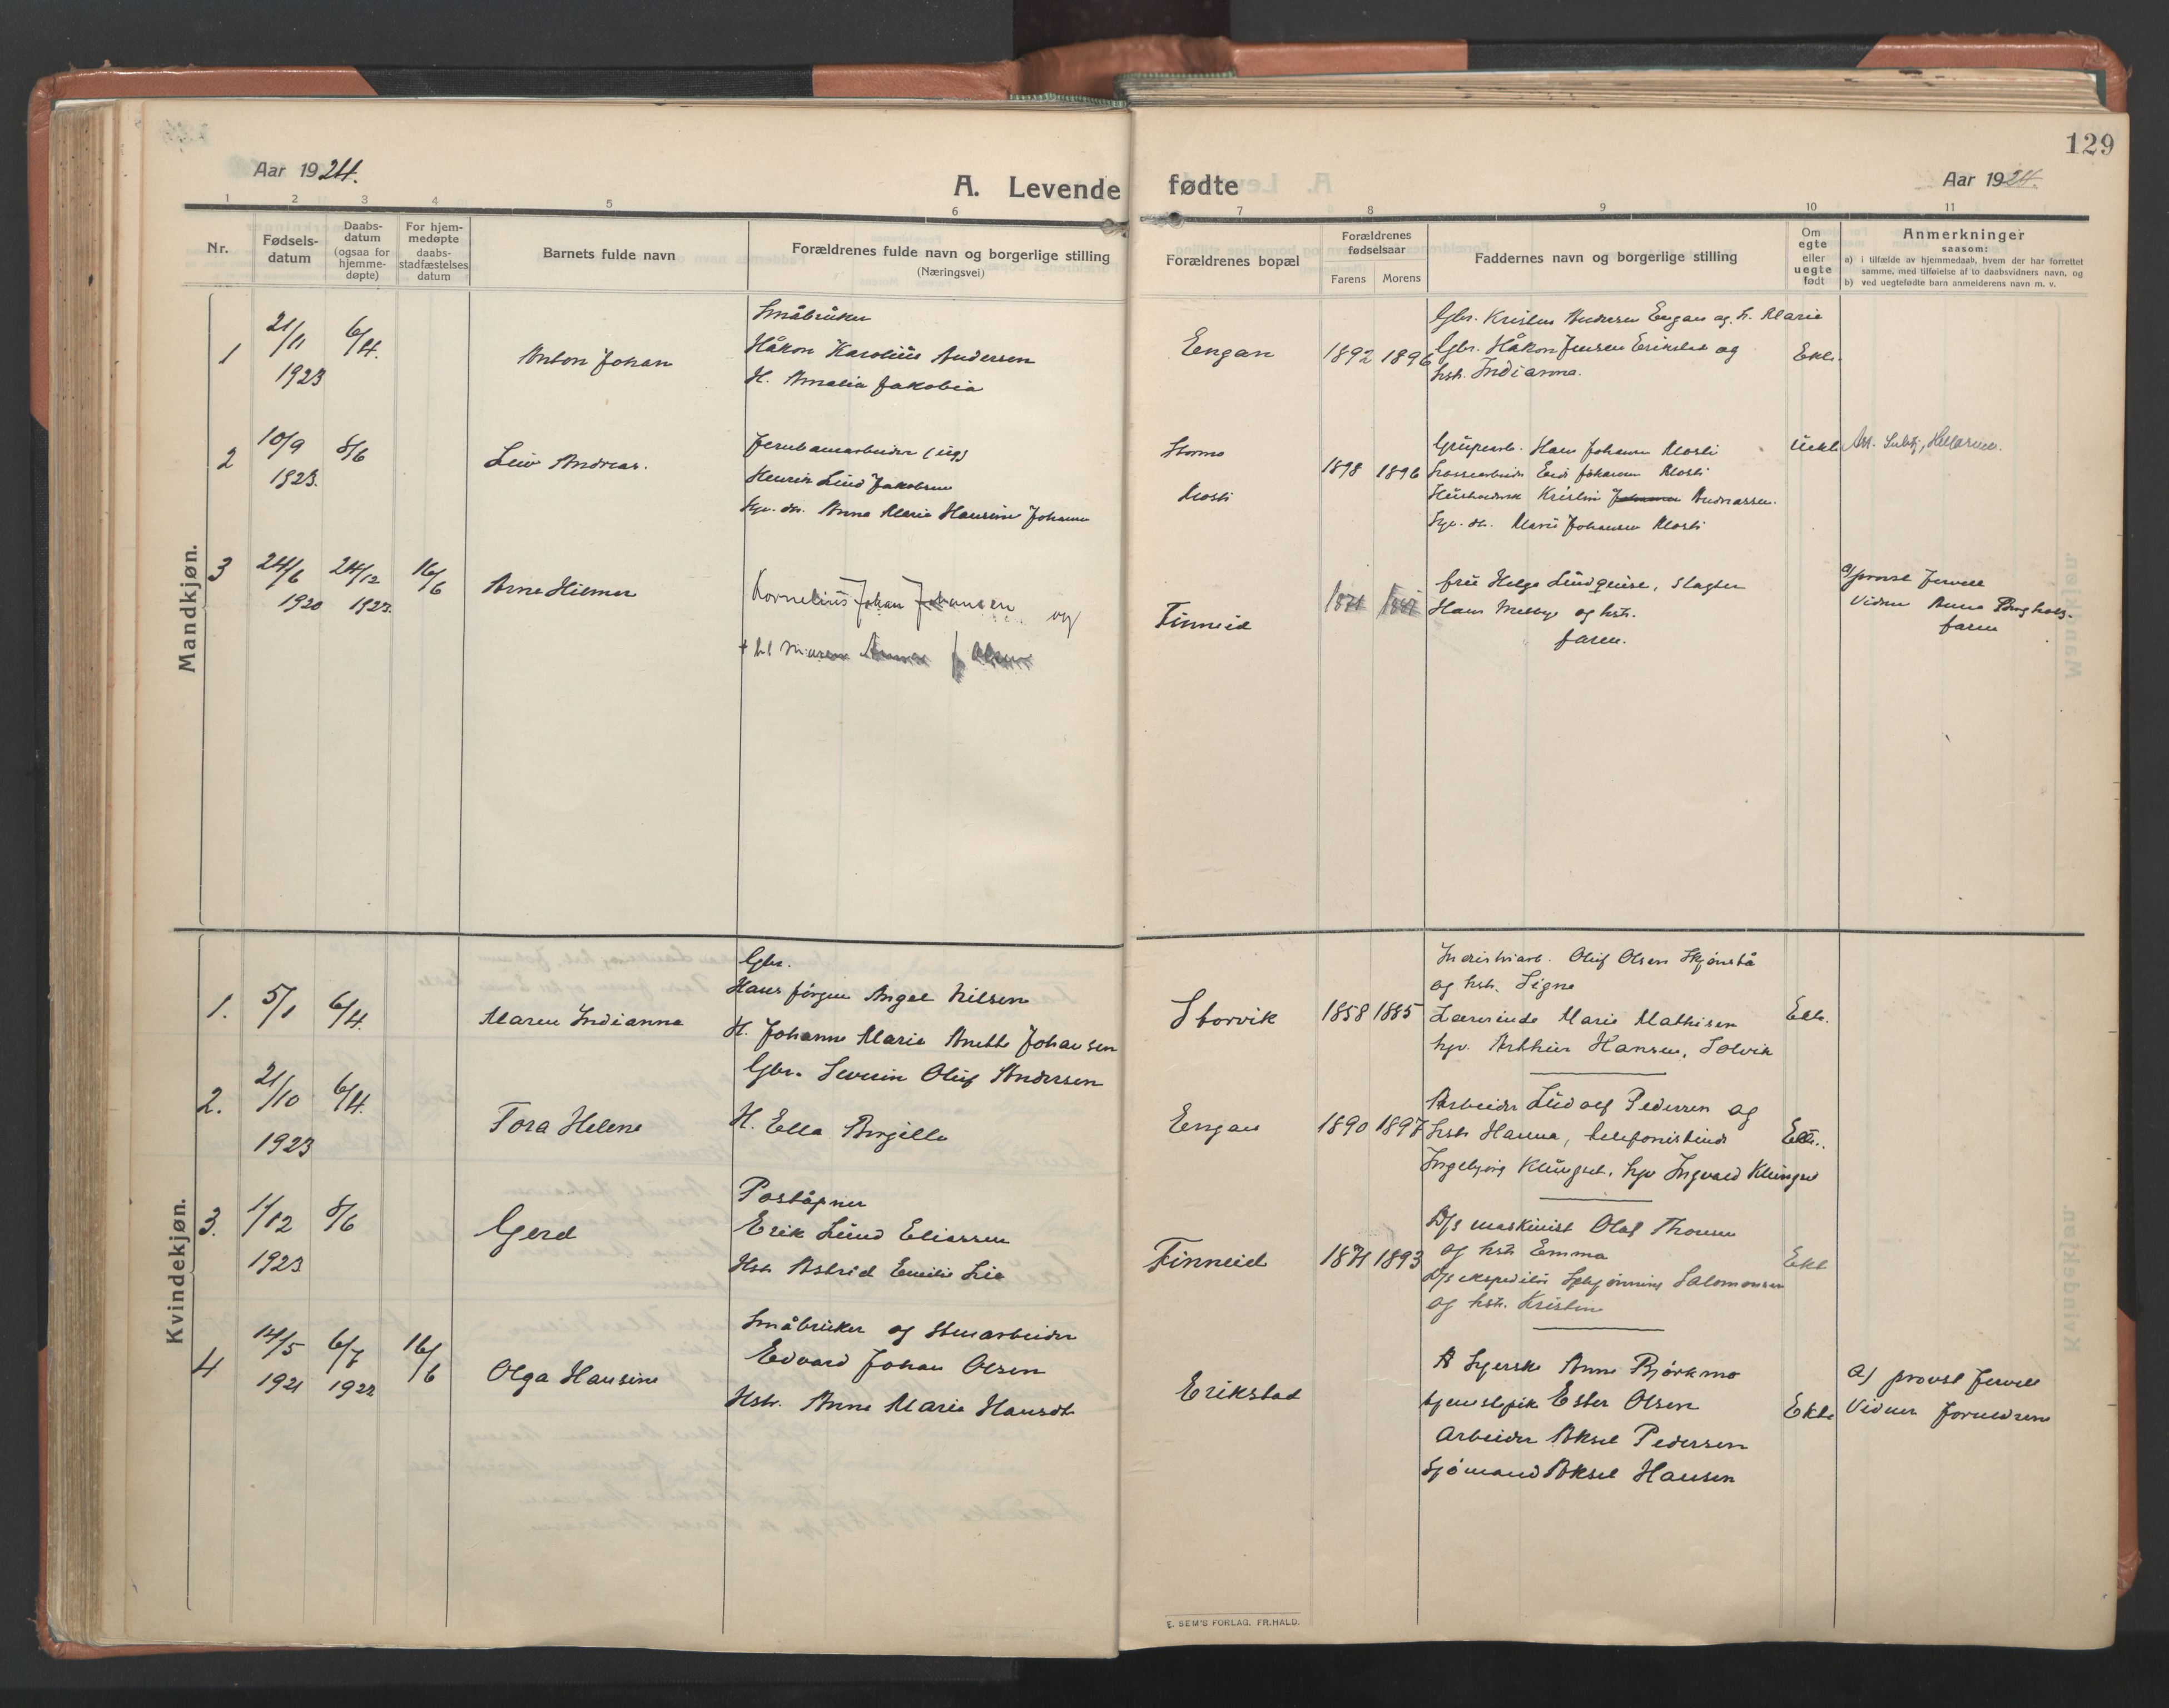 129
Aar 1924.
A. Levende fødte
Aar 1924.
1 2 3 4 5 6 7 8 9 10 11
Nr.
Fødsels-
datum
Daabs-
datum
(ogsaa for
hjemme-
døpte)
For hjem-
medøpte
daabs-
stadfæstelses
datum
Barnets fulde navn
Forældrenes fulde navn og borgerlige stilling
(Næringsvei)
Forældrenes bopæl
Forældrenes
fødselsaar
Farens Morens
Faddernes navn og borgerlige stilling
Om
egte
eller
uegte
født
Anmerkninger
saasom:
a) i tilfælde av hjemmedaab, hvem der har forrettet
samme, med tilføielse af to daabsvidners navn, og
b) ved uegtefødte barn anmelderens navn m. v.
Mandkjøn.
1
21/11
1923
6/4.
Anton Johan
Småbruker
Håkon Karolius Andersen
H. Amalia Jakobia
Engan
1892 1896
Gbr. Kristen Andersen Engan og h. Marie
Gbr. Håkon Jensen Erikstad og
hst. Indianna.
Ekte
2
10/9
1923.
8/6
Leiv Andreas.
Jernbanearbeider (ug)
Henrik Lund Jakobsen
Hjv. dtr. Anna Marie Hansine Johansen
Stormo
Mosti
1898 1896
Grubearb. Hans Johansen Mosti
Johansen Mosti
Kristin Johansen Andreassen.
Hjv. dt. Marie Johansen Mosti
Uekte
3
24/6
1920
24/12
1922
16/6
Arne Hilmar
Kornelius Johan Johansen og
+ hst Maren
Finneid
1871
Frue Helga Lundquise, Slagter
Hans Melbye og hst.
faren.
a) provst Jervell
Vidner Anna Bergholz.
faren
Kvindekjøn.
1.
5/1
6/4.
Maren Indianna
Gbr.
Hans Jørgen Angel Nilsen
H. Johanne Marie Anette Johansen
Storvik
1858 1885
Industriarb. Oluf Olsen Skjønstå
og hst. Signe
Lærerinde Marie Mathisen
hjv. Arthur Hansen, Solvik
Ekte.
2.
21/10
1923
6/4.
Tora Helene
Gbr. Severin Oluf Andersen
H. Ella Bergitte
Engan
1890 1897
Arbeider Ludolf Pedersen og
hst. Hanna, telefonistinde
Ingebjørg Klunget, hjv Ingvald Klunget
Ekte.
3.
1/12
1923
8/6
Gerd
Poståpner
Erik Lund Eliassen
Hst. Astrid Emilie Lie
Finneid
1871 1893
D/s maskinist Olaf Thonsen
og hst. Emma
D/s ekspeditør Salomonsen
og hst. Kristine
Ekte
4
14/5
1921
6/7
1922
16/6
Olga Hansine
Småbruker og stenarbeider
Edvard Johan Olsen
Hst. Anna Maria Hansdt
Erikstad
Syerske Anna Bjørkmo
tjenestepik Ester Olsen
Arbeider Aksel Pedersen
Sjømand Aksel Hansen
Ekte
a) provst Jervell
Vidner Forældrene
E. SEM'S FORLAG. FR.HALD.